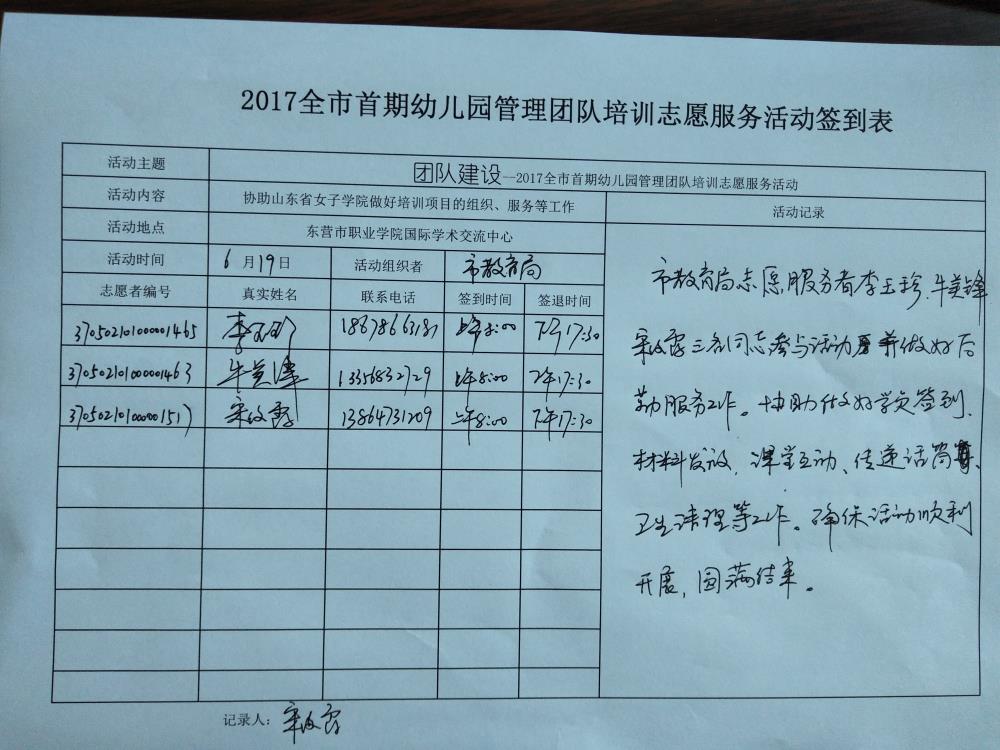 2017全市首期幼儿园管理团队培训志愿服务活动签到表
活动主题 团队建设--2017全市首期幼儿园管理团队培训志愿服务活动
活动内容 协助山东省女子学院做好培训项目的组织、服务等工作 活动记录
活动地点 东营市职业学院国际学术交流中心
活动时间 6月19日 活动组织者 市教育局
志愿者编号 真实姓名 联系电话 签到时间 签退时间
3705021010000001465 李玉珍 18678663181 上午8:00 下午17:30
370502101000001463 牛美锋 13356832729 上午8:00 下午17:30
370502101000001517 13864731209 上午8:00 下午17:30
市教育局志愿服务者李玉珍、牛美锋
三名同志参与活动并做好后
勤服务工作。协助做好学员签到、
材料发放、课堂互动、传递话筒、
卫生清理等工作。确保活动顺利
开展,圆满结束。
记录人: